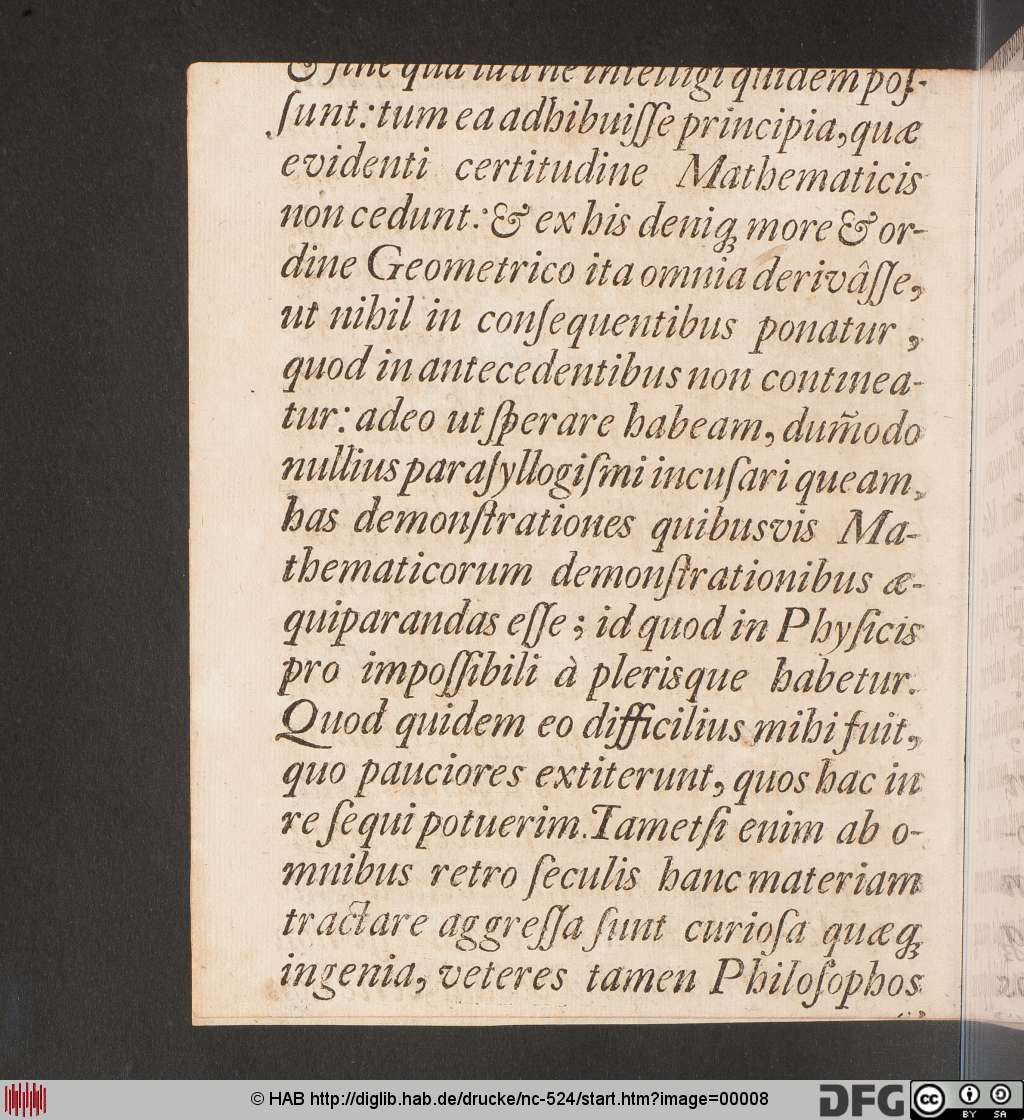 & ſine qua illa ne intelligi quidem poſ-
ſunt: tum ea adhibuiſſe principia, quæ
evidenti certitudine Mathematicis
non cedunt: & ex his deniq; more & or-
dine Geometrico ita omnia derivâſſe,
ut nihil in conſequentibus ponatur,
quod in antecedentibus non continea-
tur: adeo ut ſperare habeam, dum̃odo
nullius paraſyllogiſmi incuſari queam,
has demonſtrationes quibusvis Ma-
thematicorum demonſtrationibus æ-
quiparandas eſſe; id quod in Phyſicis
pro impoſſibili à plerisque habetur.
Quod quidem eo difficilius mihi fuit,
quo pauciores extiterunt, quos hac in
re ſequi potuerim. Tametſi enim ab o-
mnibus retro ſeculis hanc materiam
tractare aggreſſa ſunt curioſa quæq;
ingenia, veteres tamen Philoſophos
© HAB http://diglib.hab.de/drucke/nc-524/start.htm?image=00008
DFG
cc
BY SA